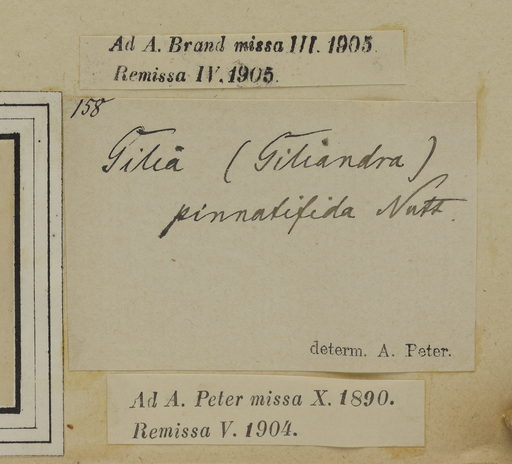 Ad A. Brand missa III. 1905.
Remissa IV. 1905.
158
Gilia (Giliandra)
pinnatifida Nutt.
determ. A. Peter.
Ad A. Peter missa X. 1890.
Remissa V. 1904.